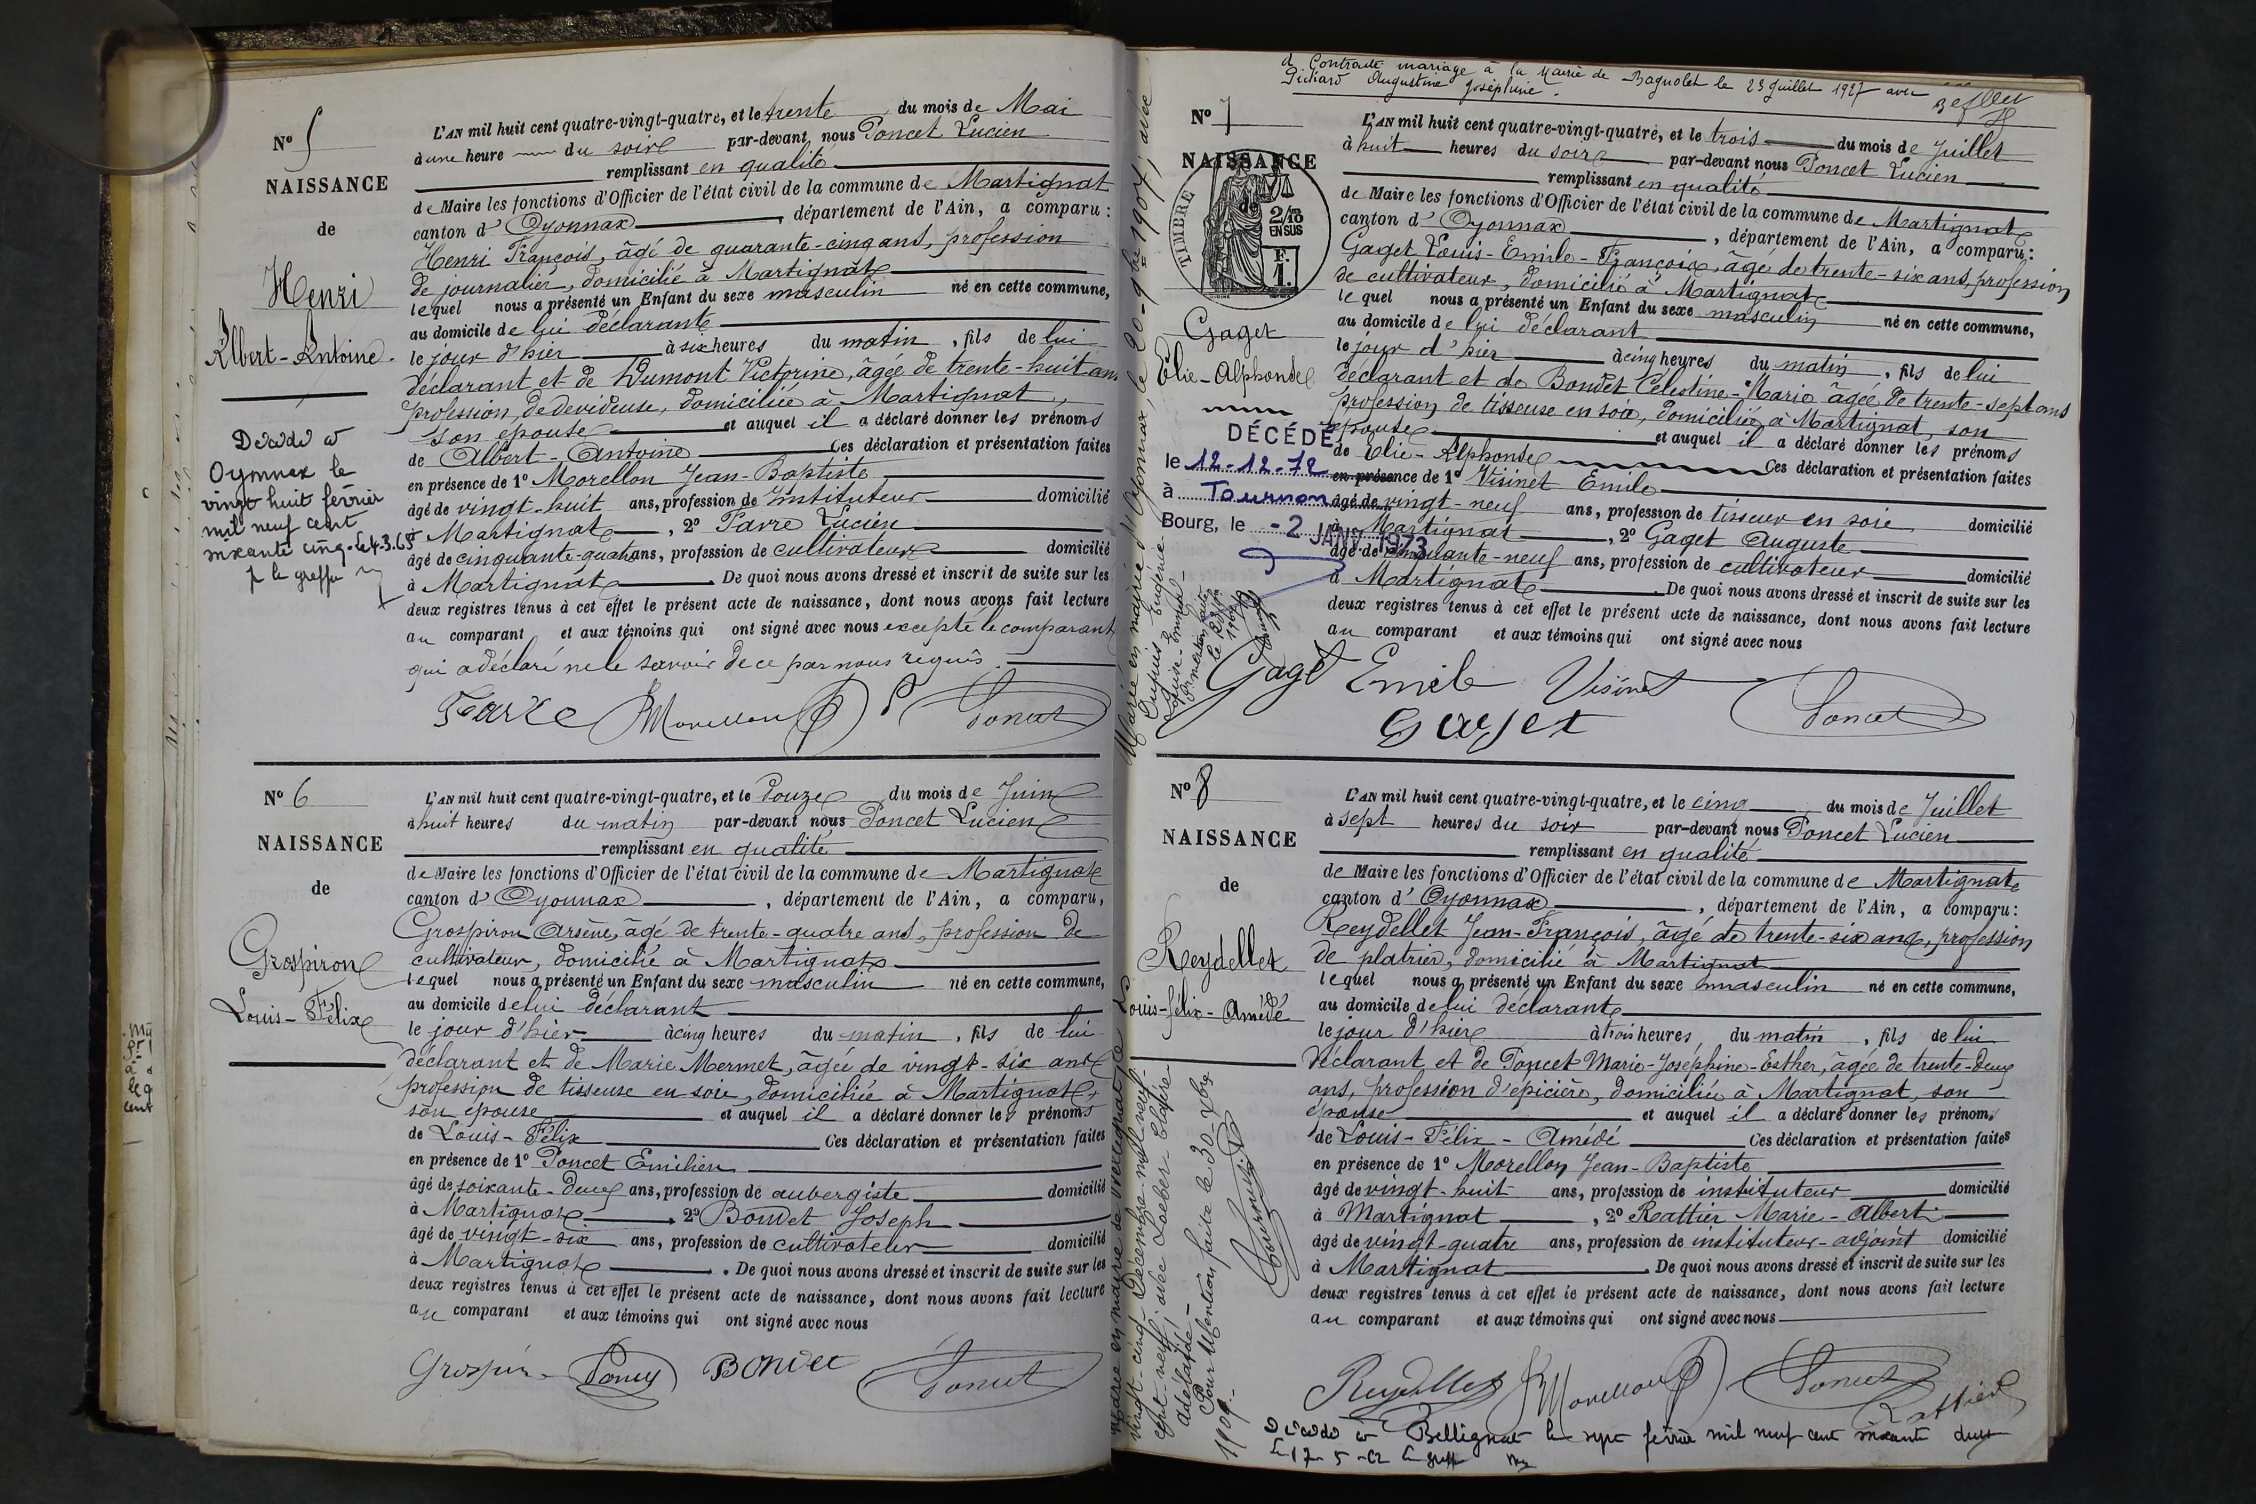 Nº 5
NAISSANCE
de
Henri
Albert-Antoine.
Décédé à
Oyonnax le
vingt huit février
mil neuf cent
soixante cinq. Le 4.3.65
L'AN mil huit cent quatre-vingt-quatre, et le trente du mois de Mai
à une heure du soir par-devant nous Poncet Lucien
remplissant en qualité
de Maire les fonctions d'Officier de l'état civil de la commune de Martignat
canton d'Oyonnax, département de l'Ain, a comparu :
Henri François, âgé de quarante-cinq ans, profession
de journalier, domicilié à Martignat
lequel nous a présenté un Enfant du sexe masculin né en cette commune,
au domicile de lui déclarant
le jour d'hier à six heures du matin, fils de lui
déclarant et de Dumont Victorine, âgée de trente-huit ans
profession de devideuse, domiciliée à Martignat,
son épouse et auquel il a déclaré donner les prénoms
de Albert-Antoine Ces déclaration et présentation faites
en présence de 1º Morellon Jean-Baptiste
âgé de vingt-huit ans, profession de Instituteur domicilié
à Martignat, 2º Favre Lucien
âgé de cinquante-quatre ans, profession de cultivateur domicilié
à Martignat. De quoi nous avons dressé et inscrit de suite sur les
deux registres tenus à cet effet le présent acte de naissance, dont nous avons fait lecture
au comparant et aux témoins qui ont signé avec nous excepté le comparant
qui a déclaré ne le savoir de ce par nous requis.
Favre Morellon Poncet
Nº 6
NAISSANCE
de
Grospiron
Louis-Félix
L'AN mil huit cent quatre-vingt-quatre, et le douze du mois de Juin
à huit heures du matin par-devant nous Poncet Lucien
remplissant en qualité
de Maire les fonctions d'Officier de l'état civil de la commune de Martignat
canton d'Oyonnax, département de l'Ain, a comparu,
Grospiron Arsène, âgé de trente-quatre ans, profession de
cultivateur, domicilié à Martignat
lequel nous a présenté un Enfant du sexe masculin né en cette commune,
au domicile de lui déclarant
le jour d'hier à cinq heures du matin, fils de lui
déclarant et de Marie Mermet, âgée de vingt-six ans
profession de tisseuse en soie, domiciliée à Martignat,
son épouse et auquel il a déclaré donner les prénoms
de Louis-Félix Ces déclaration et présentation faites
en présence de 1º Poncet Emilien
âgé de soixante-deux ans, profession de aubergiste domicilié
à Martignat, 2º Bondet Joseph
âgé de vingt-six ans, profession de cultivateur domicilié
à Martignat. De quoi nous avons dressé et inscrit de suite sur les
deux registres tenus à cet effet le présent acte de naissance, dont nous avons fait lecture
au comparant et aux témoins qui ont signé avec nous
Poncet Bondet Poncet
Contracté mariage à la Mairie de Bagnolet le 23 Juillet 1927 avec
Pichard Augustine Joséphine.
Nº 7
NAISSANCE
de
TIMBRE
2/10
EN SUS
F.
1.
Gaget
Elie-Alphonse
DÉCÉDÉ
le 12-12-72
à Tournon
Bourg, le -2 JANV. 1973
L'AN mil huit cent quatre-vingt-quatre, et le trois du mois de Juillet
à huit heures du soir par-devant nous Poncet Lucien
remplissant en qualité
de Maire les fonctions d'Officier de l'état civil de la commune de Martignat
canton d'Oyonnax, département de l'Ain, a comparu :
Gaget Louis-Emile-François, âgé de trente-six ans, profession
de cultivateur, domicilié à Martignat
lequel nous a présenté un Enfant du sexe masculin né en cette commune,
au domicile de lui déclarant
le jour d'hier à cinq heures du matin, fils de lui
déclarant et de Bondet Célestine-Marie âgée de trente-sept ans
profession de tisseuse en soie, domiciliée à Martignat, son
épouse et auquel il a déclaré donner les prénoms
de Elie-Alphonse Ces déclaration et présentation faites
en présence de 1º Visinet Emile
âgé de vingt-neuf ans, profession de tisseur en soie domicilié
à Martignat, 2º Gaget Auguste
âgé de cinquante-neuf ans, profession de cultivateur domicilié
à Martignat. De quoi nous avons dressé et inscrit de suite sur les
deux registres tenus à cet effet le présent acte de naissance, dont nous avons fait lecture
au comparant et aux témoins qui ont signé avec nous
Gaget Emile Visinet
Gaget Poncet
Marié en mairie d'Oyonnax, le 20-9bre 1907, avec
Dupuis Eugénie
Nº 8
NAISSANCE
de
Reydellet
Louis-félix-Amédé
L'AN mil huit cent quatre-vingt-quatre, et le cinq du mois de Juillet
à sept heures du soir par-devant nous Poncet Lucien
remplissant en qualité
de Maire les fonctions d'Officier de l'état civil de la commune de Martignat
canton d'Oyonnax, département de l'Ain, a comparu :
Reydellet Jean-François, âgé de trente-six ans, profession
de platrier, domicilié à Martignat
lequel nous a présenté un Enfant du sexe masculin né en cette commune,
au domicile de lui déclarant
le jour d'hier à trois heures du matin, fils de lui
déclarant et de Poncet Marie-Joséphine-Esther, âgée de trente-deux
ans, profession d'épicière, domiciliée à Martignat, son
épouse et auquel il a déclaré donner les prénoms
de Louis-Félix-Amédé Ces déclaration et présentation faites
en présence de 1º Morellon Jean-Baptiste
âgé de vingt-huit ans, profession de instituteur domicilié
à Martignat, 2º Rattier Marie-Albert
âgé de vingt-quatre ans, profession de instituteur-adjoint domicilié
à Martignat. De quoi nous avons dressé et inscrit de suite sur les
deux registres tenus à cet effet le présent acte de naissance, dont nous avons fait lecture
au comparant et aux témoins qui ont signé avec nous
Reydellet Morellon Poncet
Rattier
Marié en mairie de Bellignat, le
vingt-cinq Décembre mil neuf-
cent-neuf, avec Loeber Claire
Adélaïde
Pour Mention faite le 30 Xbre
1909.
Décédé à Bellignat le sept février mil neuf cent soixante deux